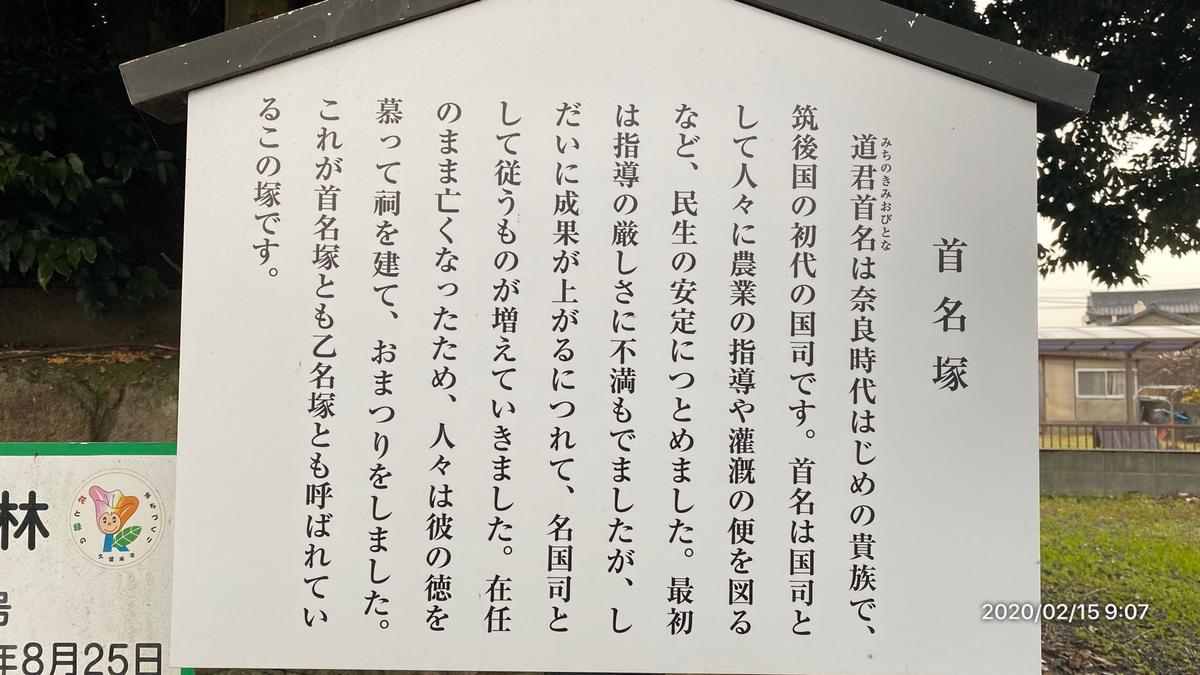 首名塚
みちのきみおびとな
道君首名は奈良時代はじめの貴族で、
筑後国の初代の国司です。首名は国司と
して人々に農業の指導や灌漑の便を図る
など、民生の安定につとめました。最初
は指導の厳しさに不満もでましたが、し
だいに成果が上がるにつれて、名国司と
して従うものが増えていきました。在任
のまま亡くなったため、人々は彼の徳を
慕って祠を建て、おまつりをしました。
これが首名塚とも乙名塚とも呼ばれてい
るこの塚です。
林
花と緑の
まちづくり
久留米市
号
年8月25日
2020/02/15 9:07